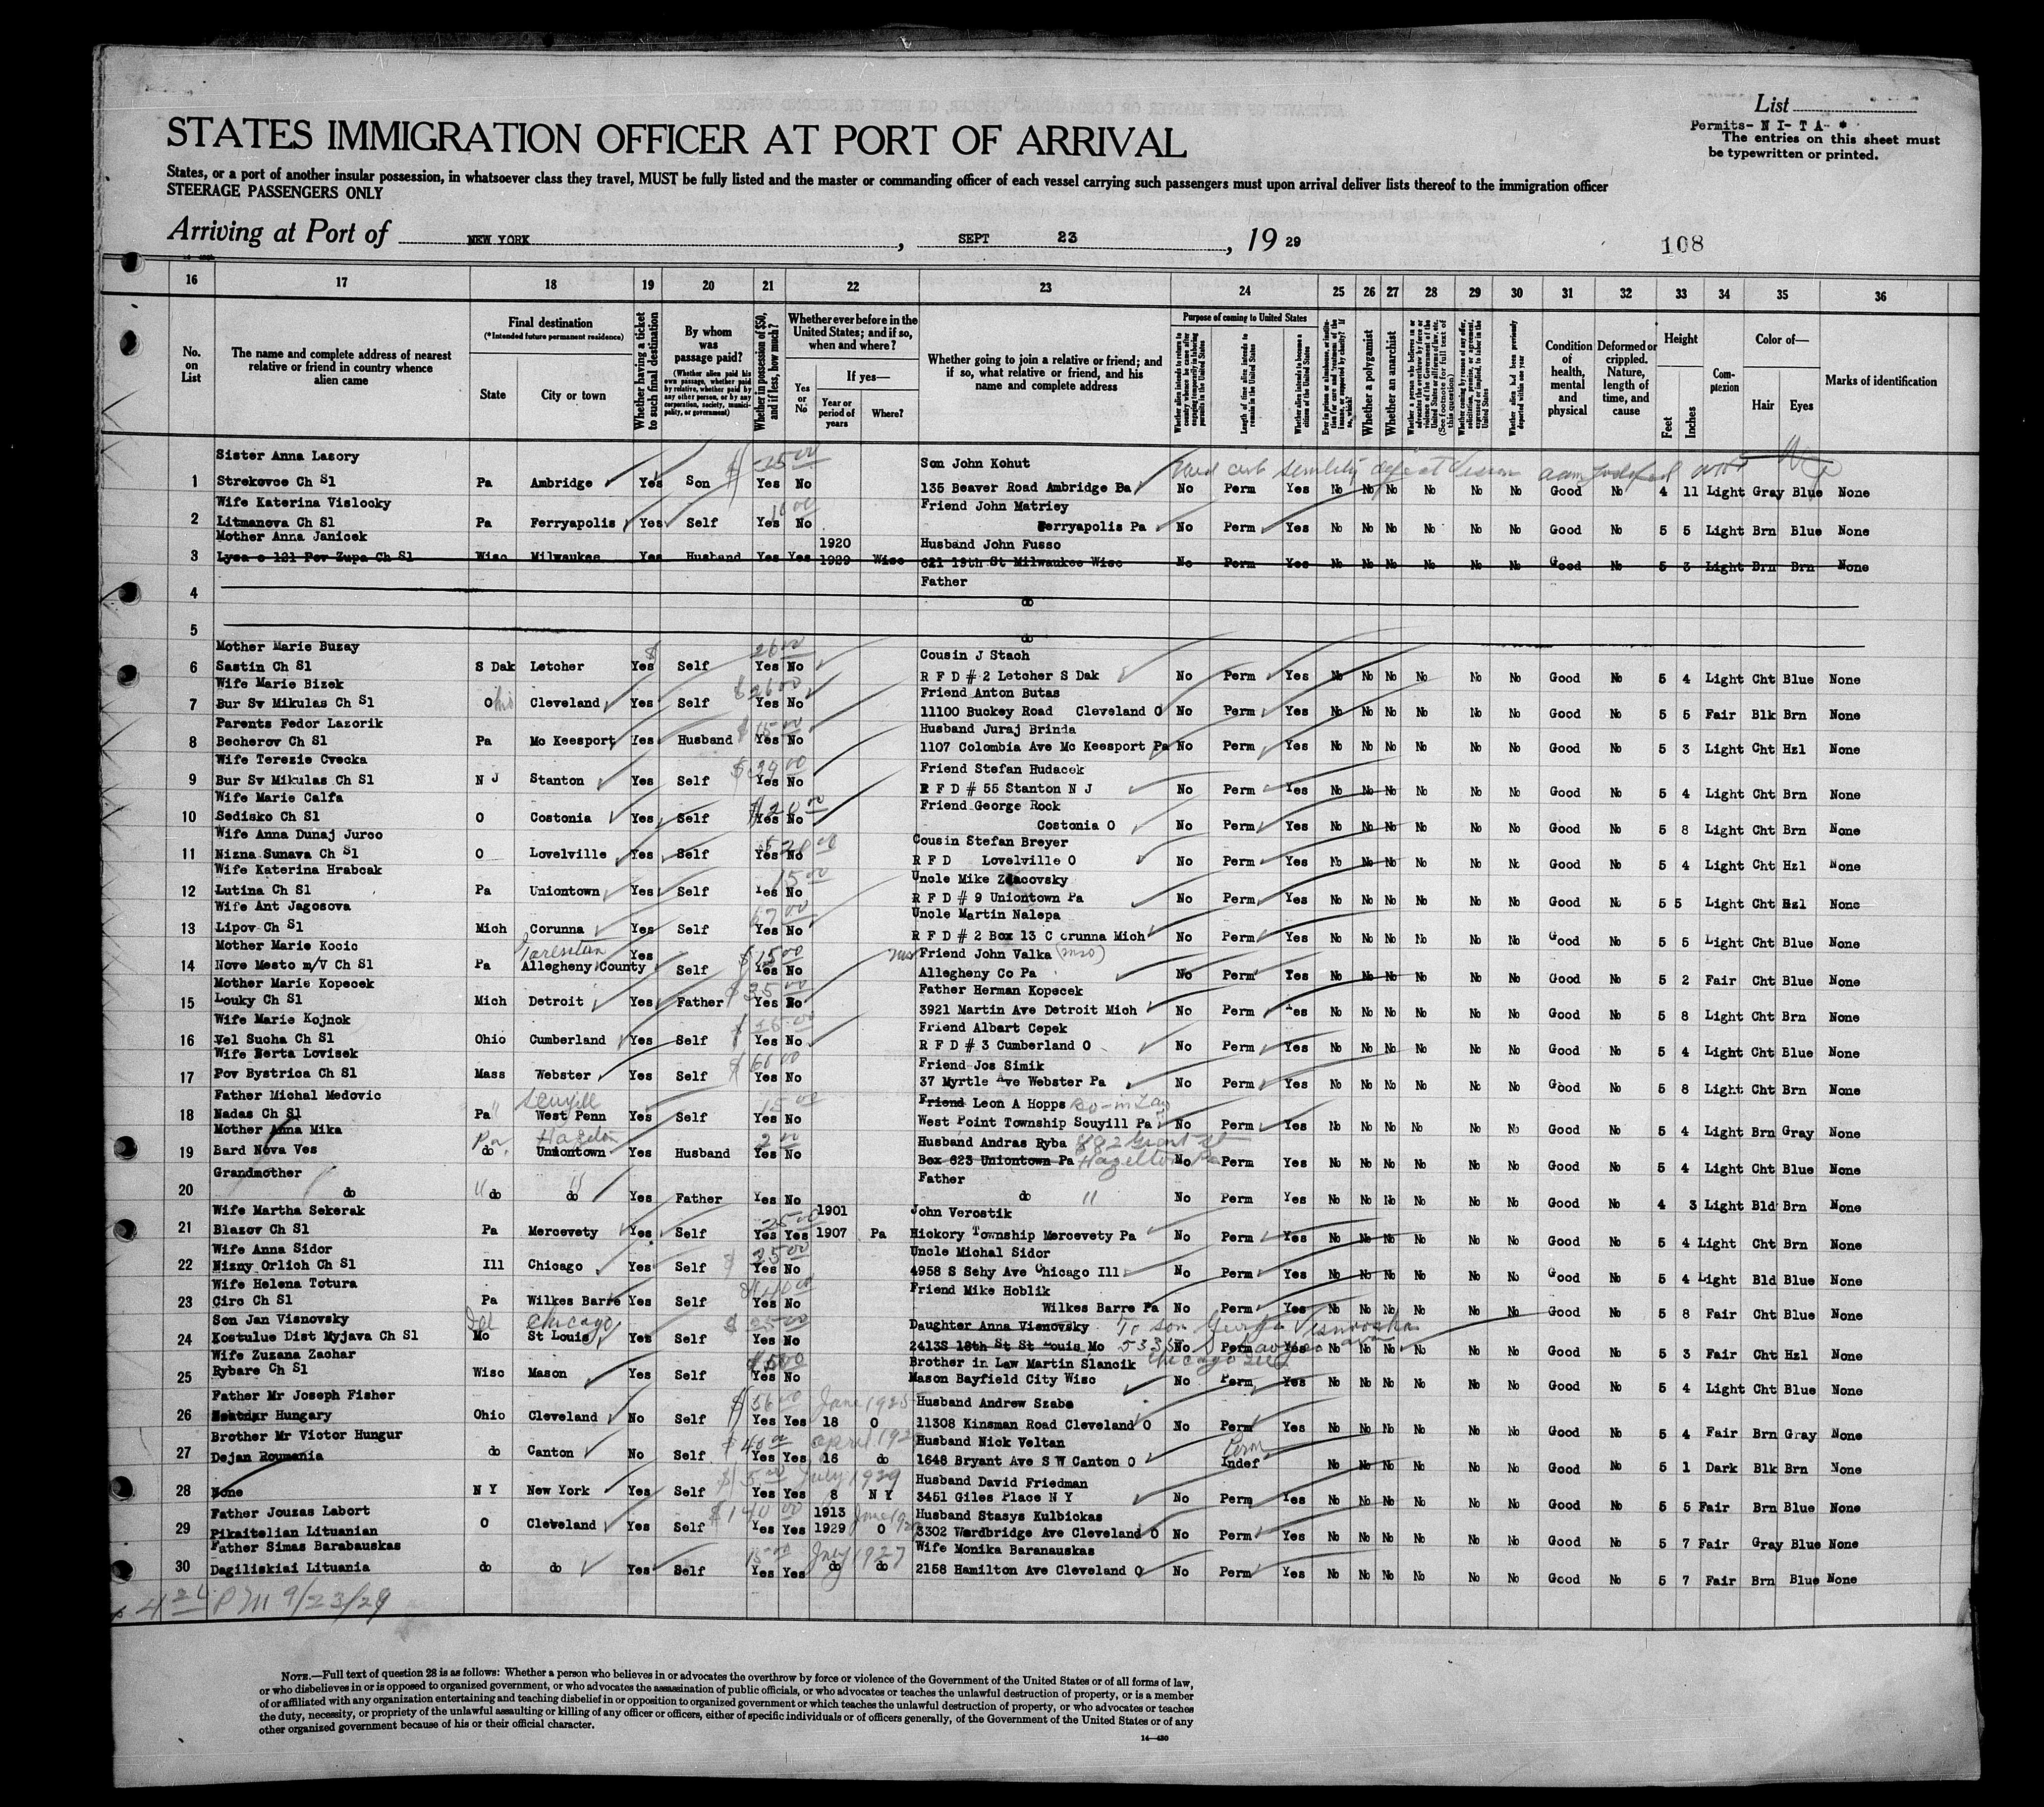 List
Permits- N I- T A- *
The entries on this sheet must
be typewritten or printed.
STATES IMMIGRATION OFFICER AT PORT OF ARRIVAL
States, or a port of another insular possession, in whatsoever class they travel, MUST be fully listed and the master or commanding officer of each vessel carrying such passengers must upon arrival deliver lists thereof to the immigration officer
STEERAGE PASSENGERS ONLY
Arriving at Port of NEW YORK, SEPT 23, 19 29
108
16 17 18 19 20 21 22 23 24 25 26 27 28 29 30 31 32 33 34 35 36
No. on List
The name and complete address of nearest relative or friend in country whence alien came
Final destination
(*Intended future permanent residence)
State
City or town
Whether having a ticket to such final destination
By whom was passage paid?
(Whether alien paid his own passage, whether paid by relative, whether paid by any other person, or by any corporation, society, municipality, or government)
Whether in possession of $50, and if less, how much?
Whether ever before in the United States; and if so, when and where?
Yes or No
If yes—
Year or period of years
Where?
Whether going to join a relative or friend; and if so, what relative or friend, and his name and complete address
Purpose of coming to United States
Length of time alien intends to remain in the United States
Whether alien intends to become a citizen of the United States
Whether a polygamist
Whether an anarchist
Condition of health, mental and physical
Deformed or crippled. Nature, length of time, and cause
Height
Feet
Inches
Complexion
Color of—
Hair
Eyes
Marks of identification
Sister Anna Lasory Son John Kohut
1 Strekovce Ch Sl Pa Ambridge Yes Son 25 00 Yes No 135 Beaver Road Ambridge Pa No Perm Yes No No No No No No Good No 4 11 Light Gray Blue None
Wife Katerina Vislocky Friend John Matriey
2 Litmanova Ch Sl Pa Ferryapolis Yes Self Yes No Ferryapolis Pa No Perm Yes No No No No No No Good No 5 5 Light Brn Blue None
Mother Anna Janicek 1920 Husband John Fusso
3 Lysa o 121 Pov Zupa Ch Sl Wisc Milwaukee Yes Husband Yes Yes 1929 Wisc 621 19th St Milwaukee Wisc No Perm Yes No No No No No No Good No 5 3 Light Brn Brn None
Father
4 do
5 do
Mother Marie Buzay Cousin J Stach
6 Sastin Ch Sl S Dak Letcher Yes Self 26 00 Yes No R F D # 2 Letcher S Dak No Perm Yes No No No No No No Good No 5 4 Light Cht Blue None
Wife Marie Bizek Friend Anton Butas
7 Bur Sv Mikulas Ch Sl Ohio Cleveland Yes Self $26 00 Yes No 11100 Buckey Road Cleveland O No Perm Yes No No No No No No Good No 5 5 Fair Blk Brn None
Parents Fedor Lazorik Husband Juraj Brinda
8 Becherov Ch Sl Pa Mc Keesport Yes Husband $15 00 Yes No 1107 Colombia Ave Mc Keesport Pa No Perm Yes No No No No No No Good No 5 3 Light Cht Hzl None
Wife Terezie Cvecka Friend Stefan Hudacek
9 Bur Sv Mikulas Ch Sl N J Stanton Yes Self $39 00 Yes No R F D # 55 Stanton N J No Perm Yes No No No No No No Good No 5 4 Light Cht Brn None
Wife Marie Calfa Friend George Rock
10 Sedisko Ch Sl O Costonia Yes Self $20 00 Yes No Costonia O No Perm Yes No No No No No No Good No 5 8 Light Cht Brn None
Wife Anna Dunaj Jurco Cousin Stefan Breyer
11 Nizna Sunava Ch Sl O Lovelville Yes Self $20 00 Yes No R F D Lovelville O No Perm Yes No No No No No No Good No 5 4 Light Cht Hzl None
Wife Katerina Hrabcak Uncle Mike Zdacovsky
12 Lutina Ch Sl Pa Uniontown Yes Self 15 00 Yes No R F D # 9 Uniontown Pa No Perm Yes No No No No No No Good No 5 5 Light Cht Hzl None
Wife Ant Jagosova Uncle Martin Nalepa
13 Lipov Ch Sl Mich Corunna Yes Self 67 00 Yes No R F D # 2 Box 13 Corunna Mich No Perm Yes No No No No No No Good No 5 5 Light Cht Blue None
Mother Marie Kocic Friend John Valka
14 Nove Mesto n/V Ch Sl Pa Allegheny County Yes Self $15 00 Yes No Allegheny Co Pa No Perm Yes No No No No No No Good No 5 2 Fair Cht Blue None
Mother Marie Kopecek Father Herman Kopecek
15 Louky Ch Sl Mich Detroit Yes Father $35 00 Yes No 3921 Martin Ave Detroit Mich No Perm Yes No No No No No No Good No 5 8 Light Cht Brn None
Wife Marie Kojnok Friend Albart Cepek
16 Vel Sucha Ch Sl Ohio Cumberland Yes Self $25 00 Yes No R F D # 3 Cumberland O No Perm Yes No No No No No No Good No 5 4 Light Cht Blue None
Wife Berta Lovisek Friend Jos Simik
17 Pov Bystrica Ch Sl Mass Webster Yes Self $60 00 Yes No 37 Myrtle Ave Webster Pa No Perm Yes No No No No No No Good No 5 8 Light Cht Brn None
Father Michal Medovic Friend Leon A Hopps Bo-in Law
18 Nadas Ch Sl Pa West Penn Yes Self 15 00 Yes No West Point Township Scuyill Pa No Perm Yes No No No No No No Good No 5 4 Light Brn Gray None
Mother Anna Mika Husband Andras Ryba 882 Grant St
19 Bard Nova Ves Pa do Hazelton Uniontown Yes Husband 2 00 Yes No Box 623 Uniontown Pa Hazelton Pa No Perm Yes No No No No No No Good No 5 4 Light Cht Blue None
Grandmother Father
20 do do do Yes Father Yes No do No Perm Yes No No No No No No Good No 4 3 Light Bld Brn None
Wife Martha Sekerak 1901 John Verostik
21 Blazov Ch Sl Pa Mercevety Yes Self 25 00 Yes Yes 1907 Pa Hickory Township Mercevety Pa No Perm Yes No No No No No No Good No 5 4 Light Cht Brn None
Wife Anna Sidor Uncle Michal Sidor
22 Nizny Orlich Ch Sl Ill Chicago Yes Self $35 00 Yes No 4958 S Sehy Ave Chicago Ill No Perm Yes No No No No No No Good No 5 4 Light Bld Blue None
Wife Helena Totura Friend Mike Hoblik
23 Circ Ch Sl Pa Wilkes Barre Yes Self $40 00 Yes No Wilkes Barre Pa No Perm Yes No No No No No No Good No 5 8 Fair Cht Blue None
Son Jan Visnovsky Ill Chicago Daughter Anna Visnovsky To son George
24 Kostulue Dist Myjava Ch Sl Mo St Louis Yes Self $25 00 Yes No 2413S 18th St St Louis Mo 5335 Chicago Ill No Perm Yes No No No No No No Good No 5 3 Fair Cht Hzl None
Wife Zuzana Zachar Brother in Law Martin Slancik
25 Rybare Ch Sl Wisc Mason Yes Self Yes No Mason Bayfield City Wisc No Perm Yes No No No No No No Good No 5 4 Light Cht Blue None
Father Mr Joseph Fisher Husband Andrew Szabo
26 Hungary Ohio Cleveland No Self $36 00 Yes Yes 18 O 11308 Kinsman Road Cleveland O No Perm Yes No No No No No No Good No 5 4 Fair Brn Gray None
Brother Mr Victor Hungur Husband Nick Veltan
27 Dejan Roumania do Canton No Self $40 00 Yes Yes 16 do 1648 Bryant Ave S W Canton O Perm Indef No No No No No No Good No 5 1 Dark Blk Brn None
July 1929 Husband David Friedman
28 None N Y New York Yes Self Yes Yes 8 N Y 3451 Giles Place N Y No Perm Yes No No No No No No Good No 5 5 Fair Brn Blue None
Father Jouzas Labort 1913 Husband Stasys Kulbickas
29 Pikaitelian Lituanian O Cleveland Yes Self $140 00 Yes Yes 1929 O 3302 Wardbridge Ave Cleveland O No Perm Yes No No No No No No Good No 5 7 Fair Gray Blue None
Father Simas Barabauskas July 1927 Wife Monika Baranauskas
30 Dagiliskiai Lituania do do Yes Self 15 00 Yes Yes do do 2158 Hamilton Ave Cleveland O No Perm Yes No No No No No No Good No 5 7 Fair Brn Blue None
PM 9/23/29
NOTE.—Full text of question 28 is as follows: Whether a person who believes in or advocates the overthrow by force or violence of the Government of the United States or of all forms of law,
or who disbelieves in or is opposed to organized government, or who advocates the assassination of public officials, or who advocates or teaches the unlawful destruction of property, or is a member
of or affiliated with any organization entertaining and teaching disbelief in or opposition to organized government or which teaches the unlawful destruction of property, or who advocates or teaches
the duty, necessity, or propriety of the unlawful assaulting or killing of any officer or officers, either of specific individuals or of officers generally, of the Government of the United States or of any
other organized government because of his or their official character.
14—430